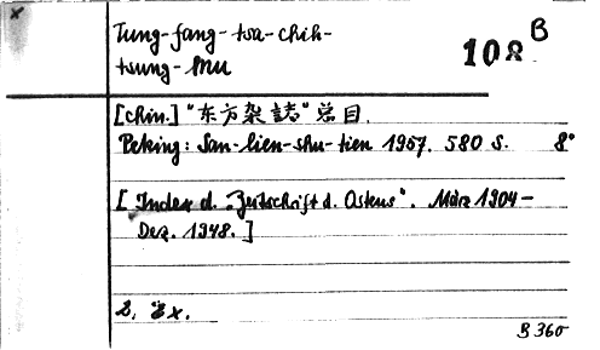 Tung-fang-tsa-chih-
tsung-mu
108 B
[chin.] "东方杂誌" 总目.
Peking: San-lien-shu-tien 1957. 580 S. 8°
[Index d. "Zeitschrift d. Ostens". März 1904 –
Dez. 1948.]
2. Ex.
B 360